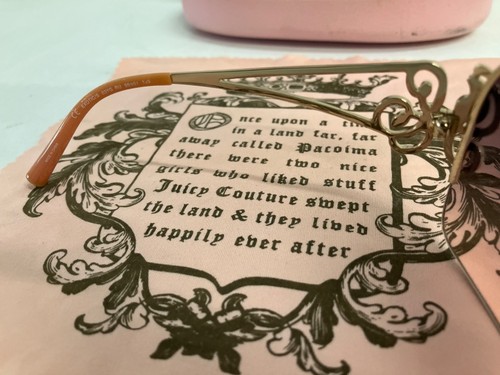 Once upon a time
in a land far, far
away called Pacoima
there were two nice
girls who liked stuff
Juicy Couture swept
the land & they lived
happily ever after